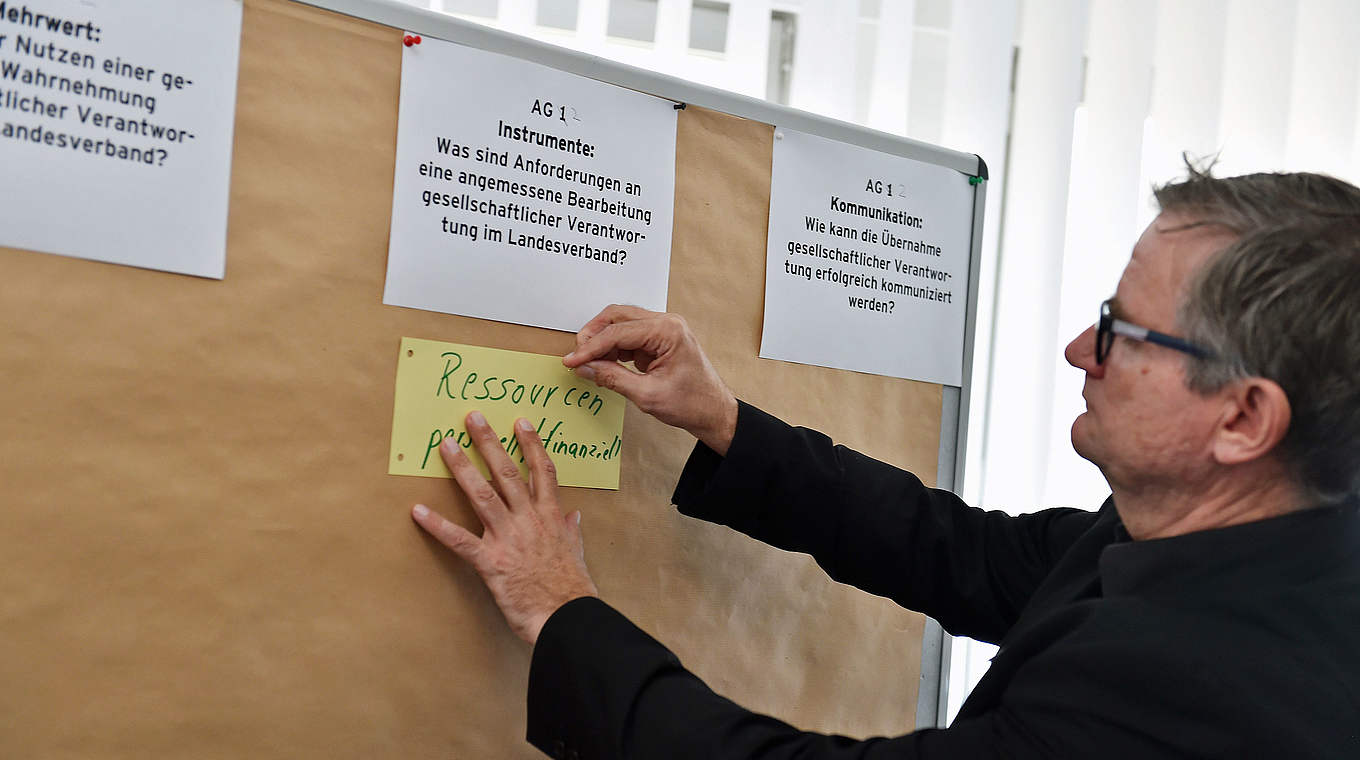 Mehrwert:
Nutzen einer ge-
Wahrnehmung
tlicher Verantwor-
andesverband?
AG 1 2
Instrumente:
Was sind Anforderungen an
eine angemessene Bearbeitung
gesellschaftlicher Verantwor-
tung im Landesverband?
AG 1 2
Kommunikation:
Wie kann die Übernahme
gesellschaftlicher Verantwor-
tung erfolgreich kommuniziert
werden?
Ressourcen
finanziell